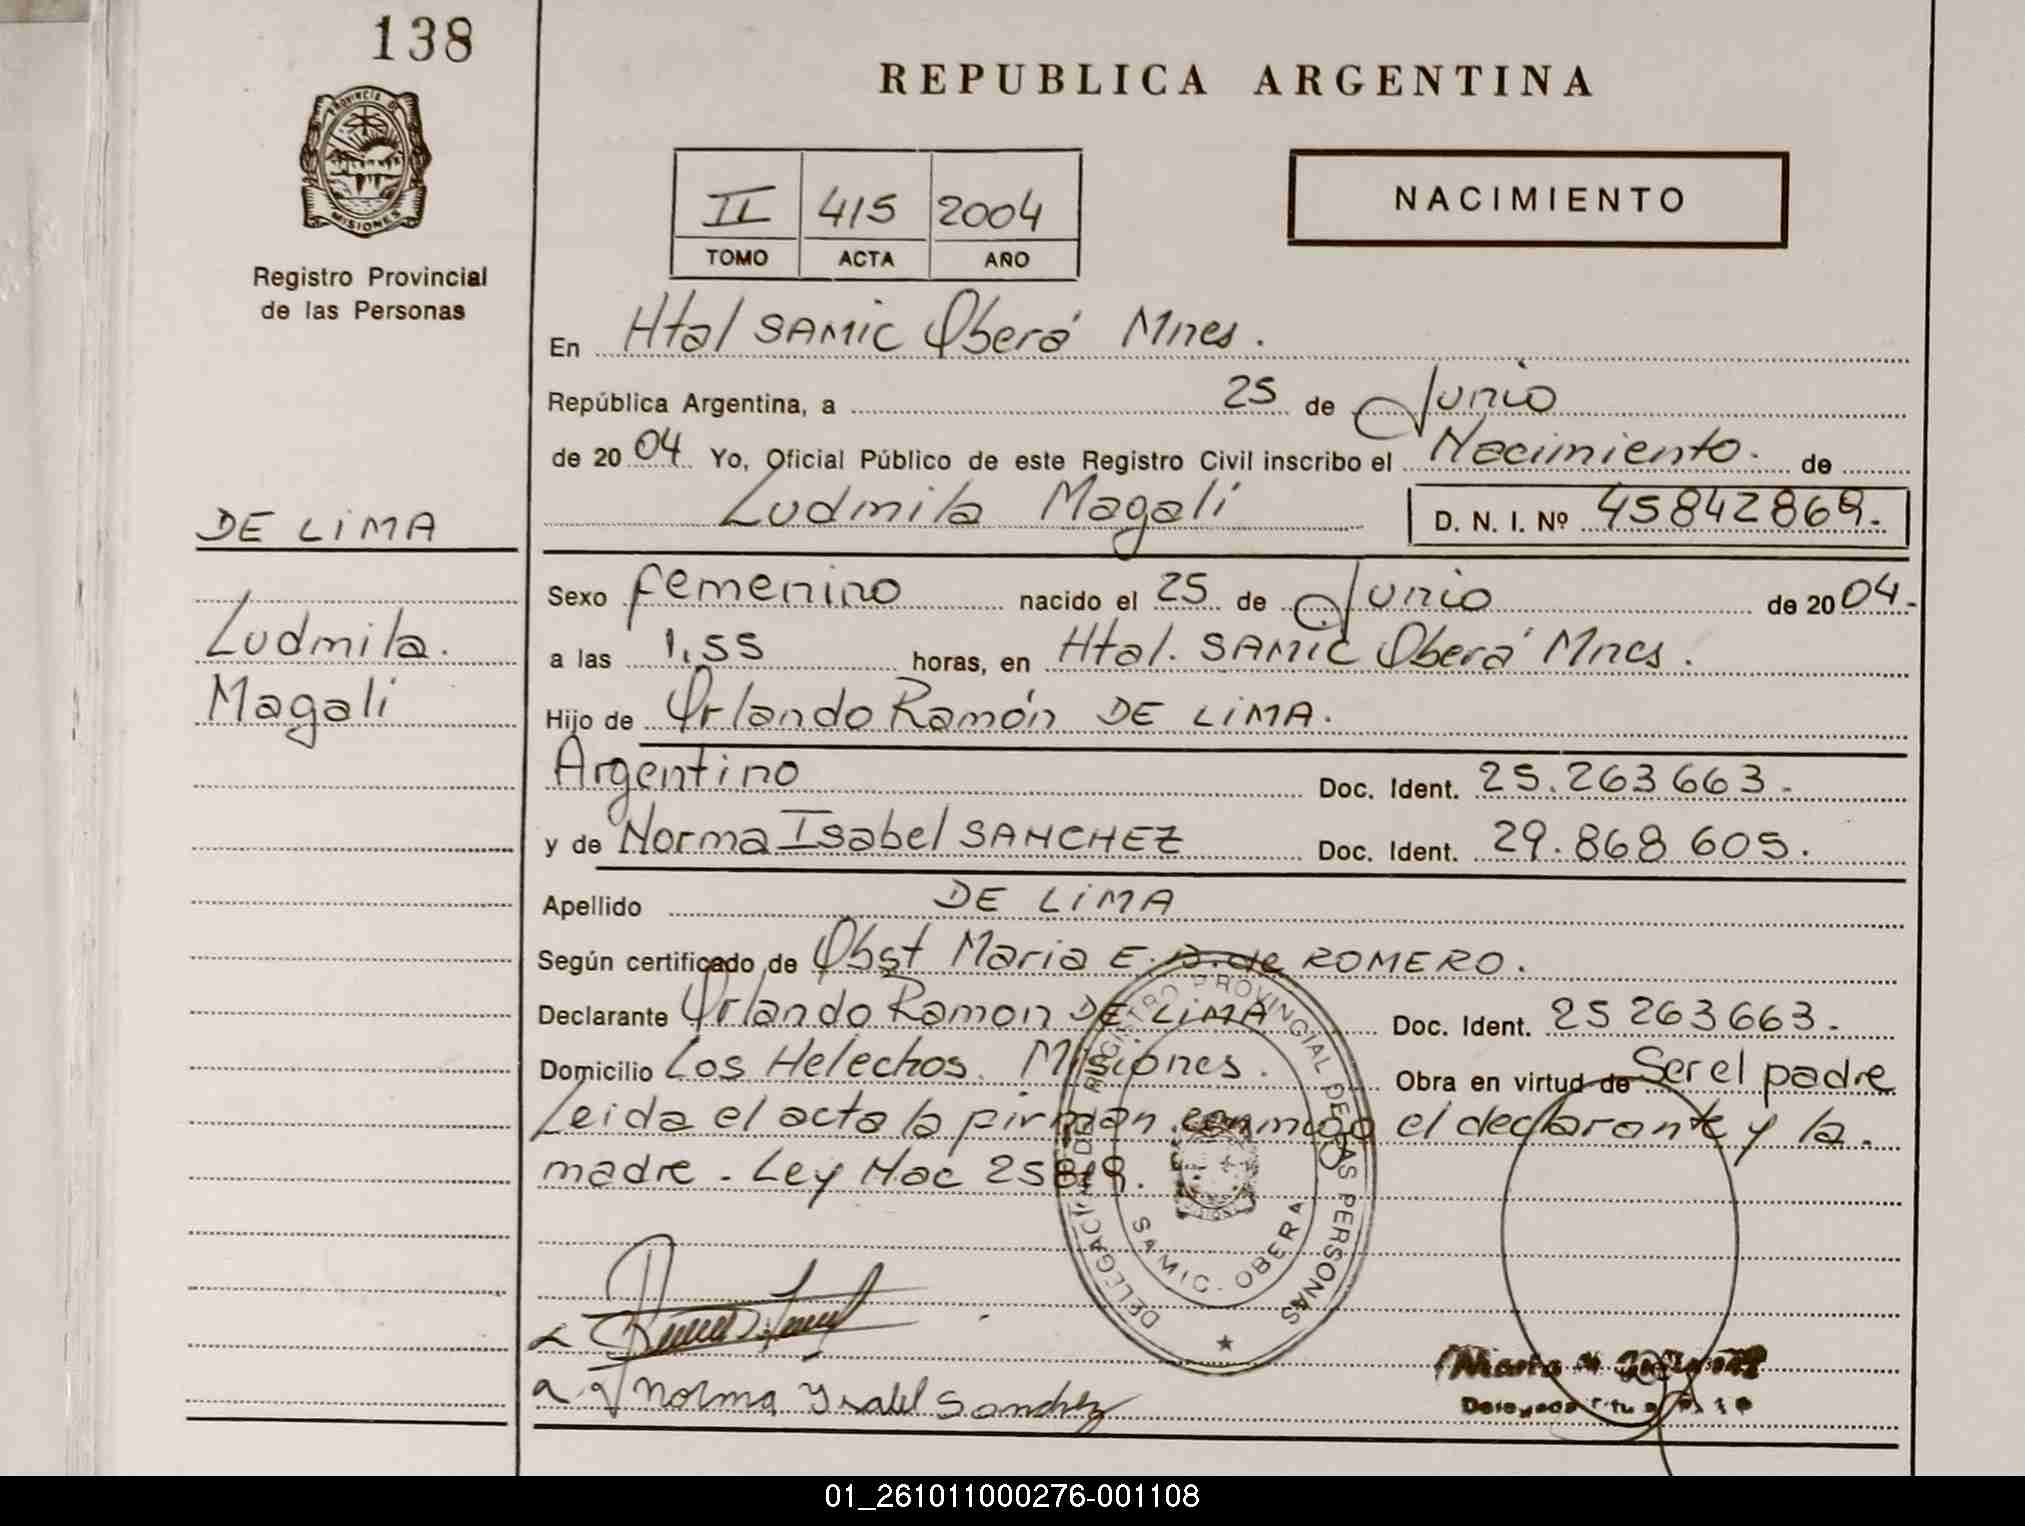 138
REPUBLICA ARGENTINA
PROVINCIA DE
MISIONES
Registro Provincial
de las Personas
II 415 2004
TOMO ACTA AÑO
NACIMIENTO
En Htal SAMIC Oberá Mnes.
República Argentina, a 25 de Junio
de 2004 Yo, Oficial Público de este Registro Civil inscribo el Nacimiento. de
Ludmila Magali D. N. I. Nº 45842869.
DE LIMA
Ludmila.
Magali
Sexo femenino nacido el 25 de Junio de 2004.-
a las 1,55 horas, en Htal. SAMIC Oberá Mnes.
Hijo de Orlando Ramón DE LIMA.
Argentino Doc. Ident. 25.263663.-
y de Norma Isabel SANCHEZ Doc. Ident. 29.868605.
Apellido DE LIMA
Según certificado de Obst Maria E. de ROMERO.
Declarante Orlando Ramon DE LIMA Doc. Ident. 25263663.-
Domicilio Los Helechos. Misiones. Obra en virtud de Ser el padre
Leida el acta la firman conmigo el declarante y la.
madre - Ley Nac 25819.
DELEGACION DEL REGISTRO PROVINCIAL DE LAS PERSONAS
SAMIC - OBERA
Norma Ysabel Sanchez
01_261011000276-001108